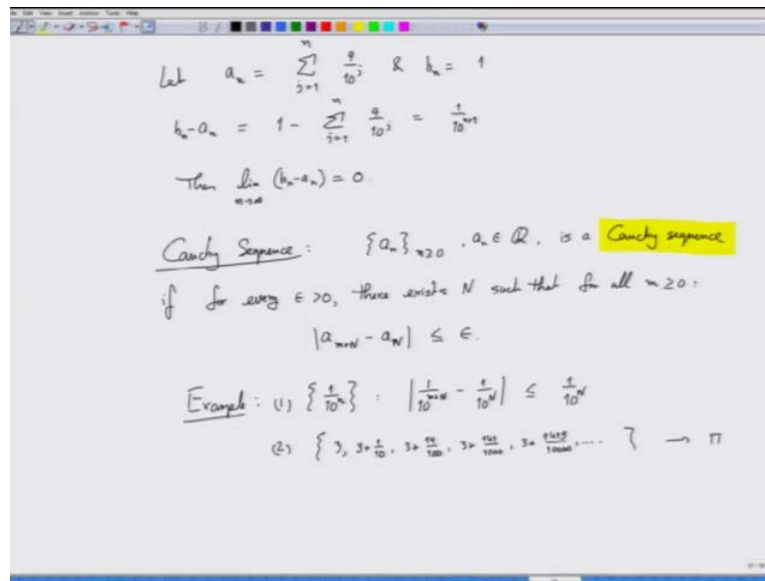 Let aₙ = ∑_{j=1}^{n} 9/10^j & bₙ = 1
bₙ-aₙ = 1 - ∑_{j=1}^{n} 9/10^j = 1/10^{n+1}
Then lim_{n→∞} (bₙ-aₙ) = 0.
Cauchy Sequence: {aₙ}_{n≥0}, aₙ ∈ ℚ, is a Cauchy sequence
if for every ∈ >0, there exists N such that for all m ≥ 0:
|a_{m+N} - a_N| ≤ ∈.
Example: (1) {1/10^n} : |1/10^{m+N} - 1/10^N| ≤ 1/10^N
(2) {3, 3+1/10, 3+14/100, 3+141/1000, 3+1415/10000, .... } → π